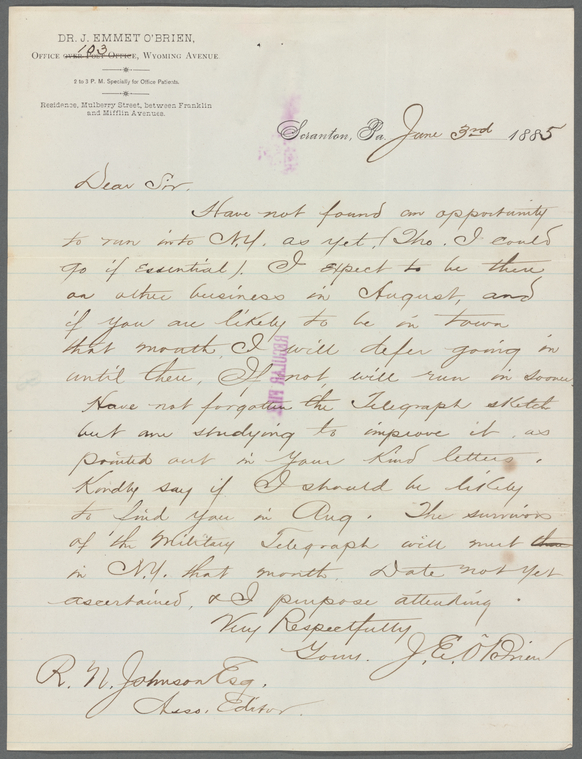 DR. J. EMMET O'BRIEN,
103
OFFICE OVER POST OFFICE, WYOMING AVENUE.
2 to 3 P. M. Specially for Office Patients.
Residence, Mulberry Street, between Franklin
and Mifflin Avenues.
Scranton, Pa. June 3rd 1885
Dear Sir.
Have not found an opportunity
to run into N.Y. as yet (Tho. I could
go if essential). I expect to be there
on other business in August, and
if you are likely to be in town
that month, I will defer going in
until then, If not will run in sooner.
Have not forgotten the Telegraph sketch
but am studying to improve it, as
pointed out in your kind letters.
Kindly say if I should be likely
to find you in Aug. The survivors
of the Military Telegraph will meet
in N.Y. that month. Date not yet
ascertained, & I purpose attending.
Very Respectfully
Yours. J. E. O'Brien
R. N. Johnson Esq.
Asso. Editor.